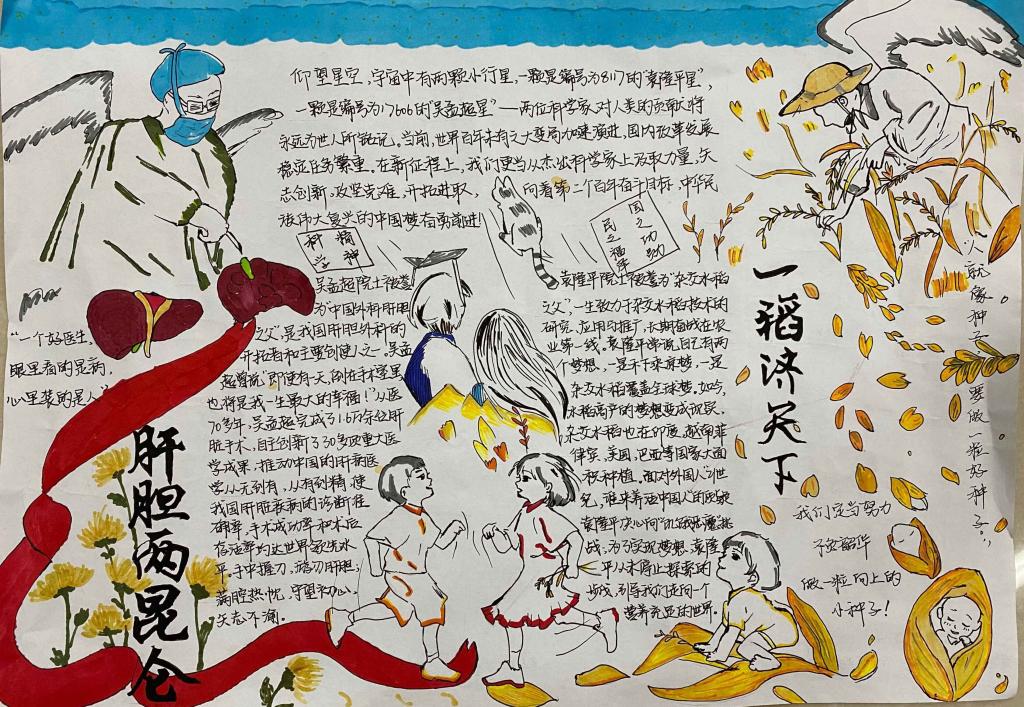 仰望星空,宇宙中有两颗小行星,一颗是编号为8117的"袁隆平星"
一颗是编号为17606的"吴孟超星"——两位科学家对人类的贡献将
永远为世人所铭记。当前,世界百年未有之大变局加速演进,国内改革发展
稳定任务繁重。在新征程上,我们更当从杰出科学家上汲取力量,矢
志创新,攻坚克难,开拓进取,向着第二个百年奋斗目标,中华民
族伟大复兴的中国梦奋勇前进!
科学
精神
吴孟超院士被誉
为"中国外科肝胆
之父",是我国肝胆外科的
开拓者和主要创建人之一。吴孟
超曾说"即使有一天,倒在手术室里
也将是我一生最大的幸福!"从医
70多年,吴孟超完成了1.6万余台肝
脏手术,自主创新了30多项重大医
学成果,推动中国的肝病医
学从无到有,从有到精,使
我国肝脏疾病的诊断准
确率,手术成功率和术后
存活率均达世界领先水
平。手中握刀,游刃肝胆;
满腔热忱,守望初心,
矢志不渝。
国之功勋
民之福祉
袁隆平院士被誉为"杂交水稻
之父",一生致力于杂交水稻技术的
研究、应用与推广,长期奋战在农
业第一线。袁隆平常说,自己有两
个梦想,一是禾下乘凉梦,一是
杂交水稻覆盖全球梦。如今,
水稻高产的梦想变成现实。
杂交水稻也在印度、越南、菲
律宾、美国、巴西等国家大面
积种植。面对外国人"21世
纪,谁来养活中国人"的质疑
战,为了实现梦想,袁隆
平从未停止探索的
步伐,引导我们走向一个
营养充足的世界
"一个好医生,
眼里看的是病,
心里装的是人"
肝胆两昆仑
一稻济天下
人就像种子,要做一粒好种子。
我们定当努力
不负韶华
做一粒向上的
小种子!